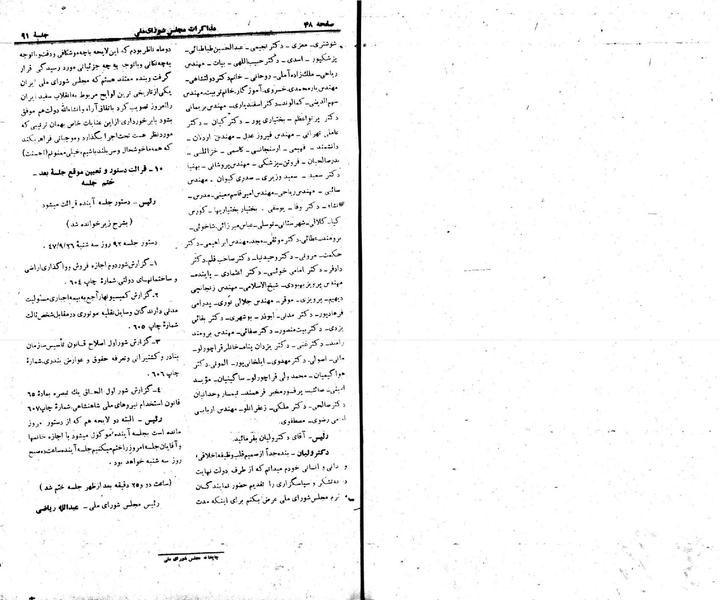 صفحه ۴۸
مذاکرات مجلس شورای ملی
جلسهٔ ۹۱
شوشتری - معزی - دکتر نجیمی - عبدالحسین طباطبائی -
پزشکپور - اسدی - دکتر حسیب اللهی - بیات - مهندس
ریاحی - ملک زاده آملی - روحانی - خانم دکتر دولتشاهی -
مهندس یارمحمدی - خسروی - آموزگار - خانم تربیت - مهندس
سهم الدینی - کمالوند - دکتر اسفندیاری - مهندس بریمانی
دکتر پرتواعظم - بختیاری پور - دکتر کیان - دکتر
عاملی تهرانی - مهندس فیروز عدل - مهندس اردلان -
دانشمند - فهیمی - ارسنجانی - کاسمی - خزاللی -
بدر صالحیان - فروتن - پزشکی - مهندس پروشانی - بهنیا
دکتر سعید - سعید وزیری - صدری کیوان - مهندس
صائبی - مهندس ریاحی - مهندس امیر قاسم معینی - مدرس -
دکتر وفا - یوسفی - بختیار بختیاریها - کورس
کیا - کلالی - شهرستانی - توسلی - عباس میرزائی - شاخوئی -
برومند - عطائی - دکتر موثقی - مجد - مهندس ابراهیمی - دکتر
حکمت - مروتی - دکتر وحیدنیا - دکتر صاحب قلم - دکتر
دادفر - دکتر امامی خوئی - دکتر اعتمادی - پاینده -
مهندس پرویز بهبودی - شیخ الاسلامی - مهندس زنجانچی
دیهیم - پرویزی - موقر - مهندس جلالی نوری - پدرامی
فرهادپور - دکتر مدنی - ابوذر - بوشهری - دکتر بقائی
یزدی - دکتر بیت منصور - دکتر صفائی - مهندس برومند
رامبد - دکتر غنی - دکتر یزدان پناه - خانلر قراچورلو -
مانی - اصولی - دکتر مهدوی - ایلخانی پور - الموتی - دکتر
هواکیمیان - محمد ولی قراچورلو - ساگینیان - مؤید
امینی - صائب - پرفسور مخبر فرهمند - تیمسار وحدانیان
دکتر صالحی - دکتر ملکی - زعفرانلو - مهندس ارباسی
امامی رضوی - مصطفوی.
رئیس - آقای دکتر ولیان بفرمائید.
دکتر ولیان - بنده جداً از صمیم قلب وظیفه اخلاقی،
دانی و انسانی خودم میدانم که از طرف دولت نهایت
تشکر و سپاسگزاری را تقدیم حضور نمایندگان
مجلس شورای ملی عرض بکنم برای اینکه مدت
دو ماه ناظر بودم که این لایحه با چه موشکافی و دقت و باتوجه
بچه نکاتی و باتوجه به چه جزئیاتی مورد رسیدگی قرار
گرفت و بنده معتقد هستم که مجلس شورای ملی ایران
یکی از تاریخی ترین لوایح مربوط به انقلاب سفید ایران
را امروز تصویب کرد با اتفاق آراء و انشاءالله دولت هم موفق
بشود با برخورداری از این عنایات خاص بهمان ترتیبی که
مورد نظر هست تحت اجرا بگذارد و موجباتی فراهم بکند
که همه ما خوشحال و سربلند باشیم، خیلی ممنونم (احسنت)
۱۰ - قرائت دستور و تعیین موقع جلسهٔ بعد -
ختم جلسه
رئیس - دستور جلسه آینده قرائت میشود
(بشرح زیر خوانده شد)
دستور جلسه ۹۲ روز سه شنبهٔ ۴۷/۹/۲۶
۱- گزارش شور دوم اجازه فروش و واگذاری اراضی
و ساختمانهای دولتی شمارهٔ چاپ ۶۰۴ .
۲- گزارش کمیسیونها راجع به بیمه اجباری مسئولیت
مدنی دارندگان وسایل نقلیه موتوری در مقابل شخص ثالث
شمارهٔ چاپ ۶۰۵ .
۳- گزارش شور اول اصلاح قانون تأسیس سازمان
بنادر و کشتیرانی و تعرفه حقوق و عوارض بندری شمارهٔ
چاپ ۶۰۶ .
۴- گزارش شور اول الحاق یک تبصره بمادهٔ ۶۵
قانون استخدام نیروهای ملی شاهنشاهی شمارهٔ چاپ ۶۰۷
رئیس - البته دو لایحه هم که از دستور امروز
مانده است بجلسه آینده موکول میشود با اجازه خانمها
و آقایان جلسه امروز را ختم میکنیم جلسه آینده ساعت ۹ صبح
روز سه شنبه خواهد بود .
(ساعت دو و ۲۵ دقیقه بعد از ظهر جلسه ختم شد)
رئیس مجلس شورای ملی - عبدالله ریاضی
چاپخانه مجلس شورای ملی